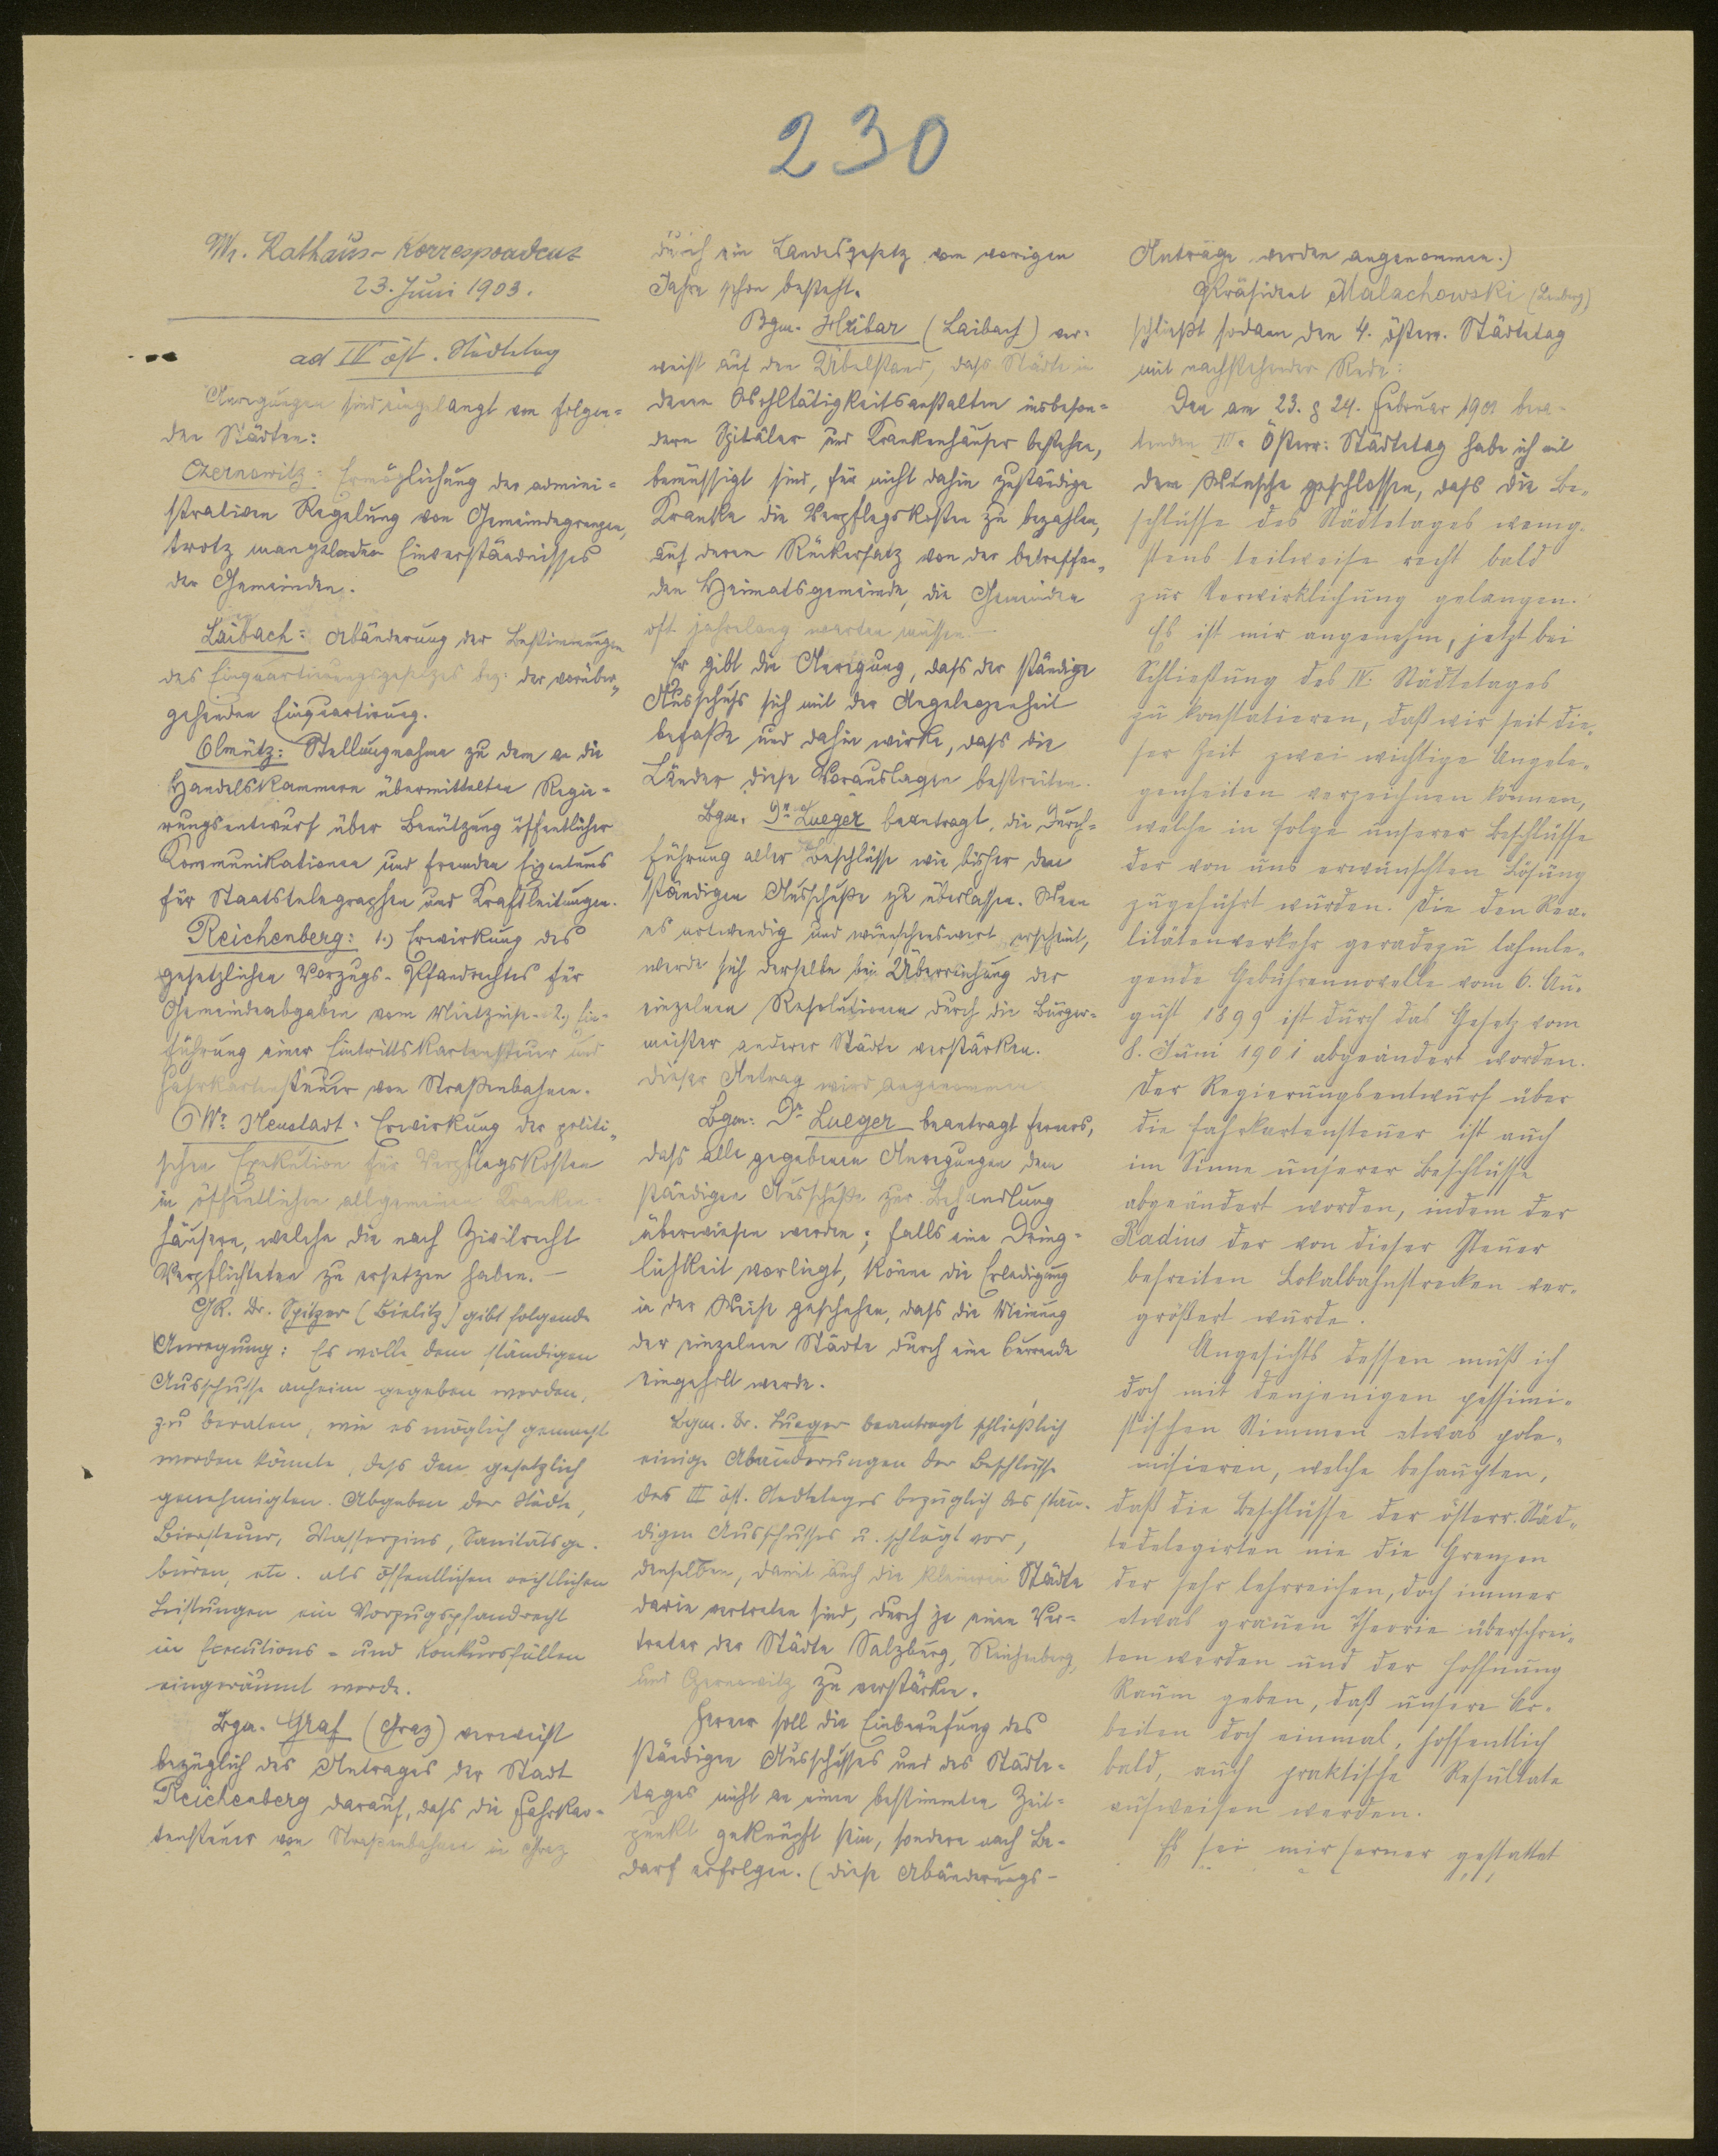 230
Wr. Rathaus-Korrespondenz
23. Juni 1903.
ad IV öst. Städtetag
Anregungen sind eingelangt von folgen=
den Städten:
Czernowitz: Ermöglichung der admini=
strativen Regelung von Gemeindegrenzen,
trotz mangelnden Einverständnisses
der Gemeinden.
Laibach: Abänderung der Bestimmungen
des Einquartierungsgesetzes bez: der vorüber=
gehenden Einquartirung.
Olmütz: Stellungnahme zu dem an die
Handelskammern übermittelten Regie=
rungsentwurf über Benützung öffentlicher
Kommunikationen und fremden Eigentums
für Staatstelegraphen und Kraftleitungen.
Reichenberg: 1.) Erwirkung des
gesetzlichen Vorzugs-Pfandrechtes für
Gemeindeabgaben vom Mietzinse - 2.) Ein=
führung einer Eintrittskartensteuer und
Fahrkartensteuer von Straßenbahnen.
Wr. Neustadt: Erwirkung der politi=
schen Exekution für Verpflegskosten
in öffentlichen allgemeinen Kranken=
häusern, welche die nach Zivilrecht
Verpflichteten zu ersetzen haben. —
GR. Dr. Spitzer (Bielitz) gibt folgende
Anregung: Es wolle dem ständigen
Ausschusse anheim gegeben werden,
zu beraten, wie es möglich gemacht
werden könnte, dass den gesetzlich
genehmigten Abgaben der Städte,
Biersteuer, Wasserzins, Sanitätsge-
büren, etc. als öffentlichen rechtlichen
Leistungen ein Vorzugspfandrecht
in Executions- und Konkursfällen
eingeräumt werde.
Bgm. Graf (Graz) verweist
bezüglich des Antrages der Stadt
Reichenberg darauf, dass die Fahrkar=
tensteuer von Strassenbahnen in Graz
durch ein Landesgesetz vom vorigen
Jahre schon besteht.
Bgm. Hribar (Laibach) ver=
weist auf den Übelstand, dass Städte in
denen Wohltätigkeitsanstalten insbeson=
dere Spitäler und Krankenhäuser bestehen,
bemüssigt sind, für nicht dahin zuständige
Kranke die Verpflegskosten zu bezahlen,
auf deren Rückersatz von der betreffen=
den Heimatsgemeinde, die Gemeinden
oft jahrelang warten müssen. —
Er gibt die Anregung, dass der ständige
Ausschuss sich mit der Angelegenheit
befaße und dahin wirke, dass die
Länder diese Vorauslagen bestreiten.
Bgm. Dr. Lueger beantragt, die Durch=
führung aller Beschlüsse wie bisher dem
ständigen Ausschuße zu überlassen. Wenn
es notwendig und wünschenswert erscheint,
werde sich derselbe bei Überreichung der
einzelnen Resolutionen durch die Bürger-
meister anderer Städte verstärken.
Dieser Antrag wird angenommen
Bgm: Dr. Lueger beantragt ferners,
dass alle gegebenen Anregungen dem
ständigen Ausschuße zur Behandlung
überwiesen werden; falls eine Dring=
lichkeit vorliegt, könne die Erledigung
in der Weise geschehen, dass die Meinung
der einzelnen Städte durch eine Currende
eingeholt werde.
Bgm. Dr. Lueger beantragt schließlich
einige Abänderungen der Beschlüsse
des III öst. Stedtetages bezüglich des stän-
digen Ausschusses u. schlägt vor,
denselben, damit auch die kleineren Städte
darin vertreten sind, durch je einen Ver=
treter der Städte Salzburg, Reichenberg,
und Czernowitz zu verstärken.
Ferner soll die Einberufung des
ständigen Ausschusses und des Städte=
tages nicht an einen bestimmten Zeit=
punkt geknüpft sein, sondern nach Be=
darf erfolgen. (Diese Abänderungs-
Anträge werden angenommen.)
Präsident Malachowski (Lemberg)
schließt sodann den 4. österr. Städtetag
mit nachstehender Rede:
Den am 23. & 24. Februar 1901 bera=
tenden III. Österr: Städtetag habe ich mit
dem Wunsche geschlossen, dass die Be=
schlüsse des Städtetages wenig-
stens teilweise recht bald
zur Verwirklichung gelangen.
Es ist mir angenehm, jetzt bei
Schließung des IV. Städtetages
zu konstatieren, daß wir seit die-
ser Zeit zwei wichtige Angele-
genheiten verzeichnen können,
welche in folge unserer Beschlüsse
der von uns erwünschten Lösung
zugeführt wurden. Die den Rea-
litätenverkehr geradezu lahmle-
gende Gebührennovelle vom 6. Au-
gust 1899 ist durch das Gesetz vom
8. Juni 1901 abgeändert worden.
Der Regierungsentwurf über
die Fahrkartensteuer ist auch
im Sinne unserer Beschlüsse
abgeändert worden, indem der
Radius der von dieser Steuer
befreiten Lokalbahnstrecken ver-
größert wurde.
Angesichts dessen muß ich
doch mit denjenigen pessimi-
stischen Stimmen etwas pole-
misieren, welche behaupten,
daß die Beschlüsse der österr. Städ-
tedelegirten nie die Grenzen
der sehr lehrreichen, doch immer
etwas grauen Theorie überschrei-
ten werden und der Hoffnung
Raum geben, daß unsere Ar-
beiten doch einmal, hoffentlich
bald, auch praktische Resultate
aufweisen werden.
Es sei mir ferner gestattet